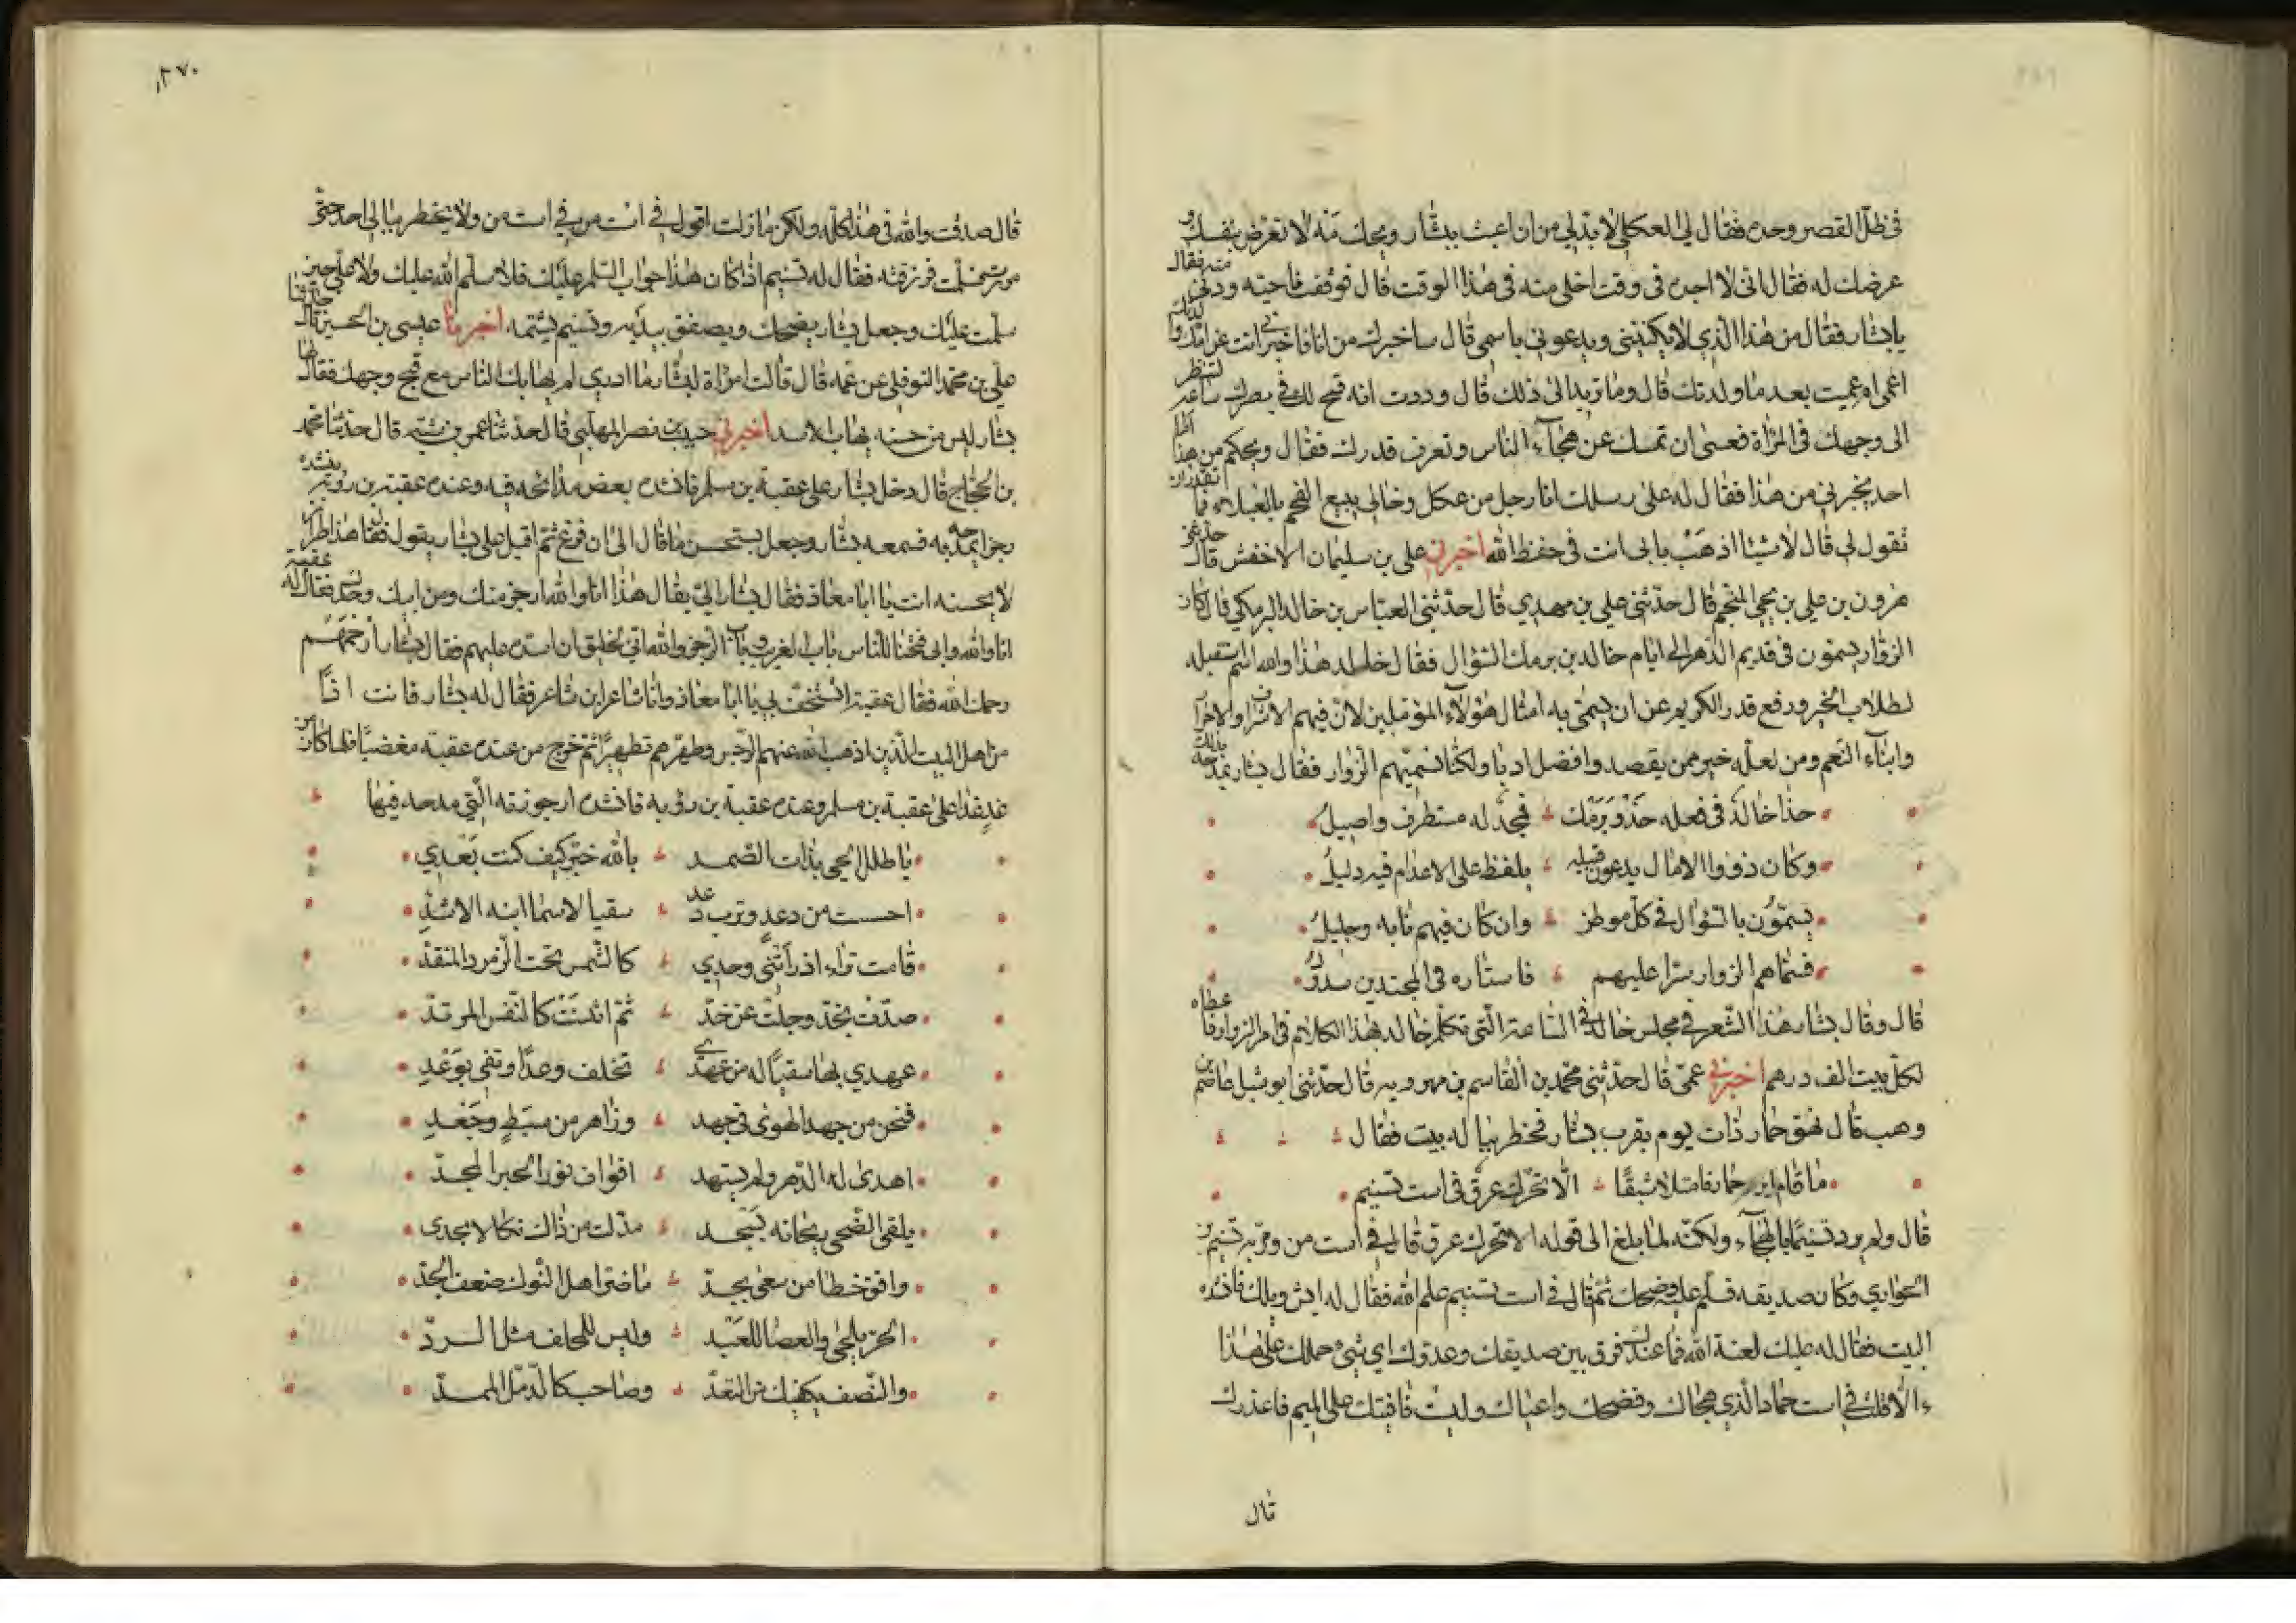 في ظل القصر وحده فقال لي العكلي لا بد لي من ان اعبث ببشار ويحك مه لا تعرض بنفسك و
عرضك له فقال اني لا اجده في وقت اخلى منه في هذا الوقت قال فوقفت ناحيته ودنى منه فقال
يا بشار فقال من هذا الذي لا يكنيني ويدعوني باسمي قال ساخبرك من انا فاخبرني انت عن امك
اعمى ام عميت بعد ما ولدتك قال وما تريد الى ذلك قال وددت انه فتح لك في بصرك ساعة لتنظر
الى وجهك في المرآة فعسى ان تمسك عن هجاء الناس وتعرف قدرك فقال ويحكم من هذا اما
احد يخبرني من هذا فقال له على رسلك انا رجل من عكل وخالي يبيع الفحم بالعبلاء فما تقدر ان
تقول لي قال لا شيئا اذهب بابي انت في حفظ الله اخبرني علي بن سليمان الاخفش قال حدثني
هرون بن علي بن يحيى المنجم قال حدثني علي بن مهدي قال حدثني العباس بن خالد البرمكي قال كان
الزوار يسمون في قديم الدهر الى ايام خالد بن برمك السؤال فقال خالد هذا والله اسم استقبله
لطلاب الخير ورفع قدر الكريم عن ان يسمى به امثال هؤلاء المؤملين لان فيهم الاشراف والاحرار
وابناء النعم ومن لعله خير ممن يقصد وافضل ادبا ولكنا نسميهم الزوار فقال بشار يمدحه بذلك
حذا خالد في فعله حذو برمك فمجد له مستطرف واصيل
وكان ذووا الامال يدعون قبله بلفظ على الاعدام فيه دليل
يسمون بالسؤال في كل موطن وان كان فيهم نابه وجليل
فسماهم الزوار سترا عليهم فاستاره في المجتدين سدول
قال وقال بشار هذا الشعر في مجلس خالد في الساعة التي تكلم خالد بهذا الكلام في امر الزوار فاعطاه
لكل بيت الف درهم اخبرني عمي قال حدثني محمد بن القاسم بن مهرويه قال حدثني ابو شبل عاصم بن
وهب قال نهق حمار ذات يوم بقرب بشار فخطر بباله بيت فقال
ما قام اير حمار فامتلا شبقا الا تحرك عرق في است تسنيم
قال ولم يرد تسنيما بالهجاء ولكنه لما بلغ الى قوله الا تحرك عرق قال في است من ومر به تسنيم بن
الحواري وكان صديقه فسلم عليه وضحك ثم قال في است تسنيم علم الله فقال له ايش ويلك فانشده
البيت فقال له عليك لعنة الله فما عندك فرق بين صديقك وعدوك اي شيء حملك على هذا
الا قلت في است حماد الذي هجاك وفضحك واعياك وليست قافيتك على الميم فاعذرك
قال
٢٧٠
قال صدقت والله في هذا كله ولكن ما زلت اقول في است من في است من ولا يخطر ببالي احد حتى
مررت وسلمت فرزقته فقال له تسنيم اذا كان هذا جواب السلام عليك فلا سلم الله عليك ولا علي حين
سلمت عليك وجعل بشار يضحك ويصفق بيديه وتسنيم يشتمه اخبرنا عيسى بن الحسين قال حدثنا
علي بن محمد النوفلي عن عمه قال قالت امراة لبشار ما ادري لم يهابك الناس مع قبح وجهك فقال لها
بشار ليس من حسنه يهاب الاسد اخبرني حبيب بن نصر المهلبي قال حدثنا عمر بن شبة قال حدثنا محمد
بن الحجاج قال دخل بشار على عقبة بن مسلم فانشده بعض مدائحه فيه وعنده عقبة بن رؤبة ينشده
رجزا يمدحه به فسمعه بشار وجعل يستحسن ما قال الى ان فرغ ثم اقبل على بشار يقول فقال هذا طراز
لا يحسنه انت يا ابا معاذ فقال بشار الي يقال هذا انا والله ارجز منك ومن ابيك وجدك فقال له عقبة
انا والله وابي فتحنا للناس باب الغريب وباب الرجز والله اني لخليق ان اسده عليهم فقال بشار ارحمهم
رحمك الله فقال عقبة اتستخف بي يا ابا معاذ وانا شاعر ابن شاعر فقال له بشار فانت اذا
من اهل البيت الذين اذهب الله عنهم الرجس وطهرهم تطهيرا ثم خرج من عنده عقبة مغضبا فلما كان من
غد غدا على عقبة بن مسلم وعنده عقبة بن رؤبة فانشده ارجوزته التي مدحه فيها
يا طلل الحي بذات الصمد بالله خبر كيف كنت بعدي
احسست من دعد وترب دعد سقيا لاسما ابنة الاشد
قامت تراءى اذ رأتني وحدي كالشمس تحت الزمرد المنقد
صدت بخد وجلت عن خد ثم انثنت كالنفس المرتد
عهدي بها سقيا له من عهد تخلف وعدا وتفي بوعد
فنحن من جهد الهوى في جهد وزاهر من سبط وجعد
اهدى له الدهر ولم يستهد افواف نور الحبر المجد
يلقى الضحى ريحانه بسجد بدلت من ذاك بكا لا يجدي
وافق حظا من سعى بجد ما ضر اهل النوك ضعف الجد
الحر يلحى والعصا للعبد وليس للملحف مثل الرد
والنصف يكفيك من التعد وصاحب كالدمل الممد